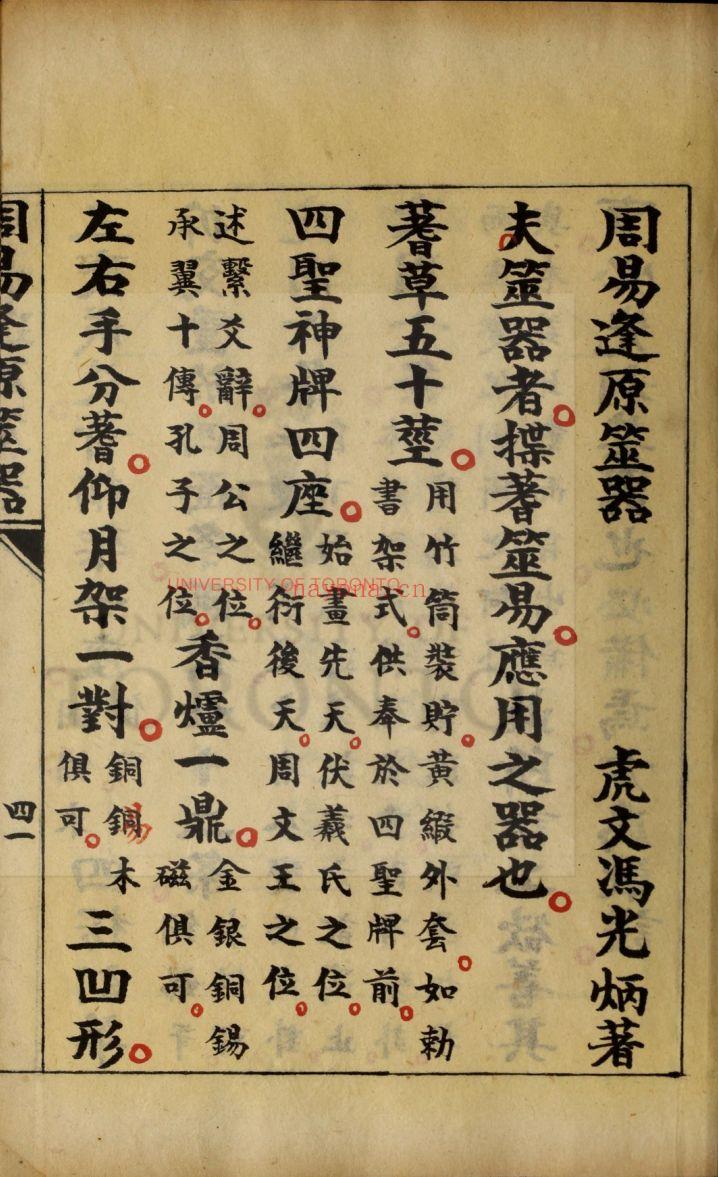 周易逢原筮器 虎文馮光炳著
夫筮器者。揲蓍筮易。應用之器也。
蓍草五十莖。
用竹筒裝貯。黃緞外套。如勅
書架式。供奉於四聖牌前。
四聖神牌四座。
始畫先天。伏羲氏之位。
繼衍後天。周文王之位。
述繫爻辭。周公之位。
承翼十傳。孔子之位。
香爐一鼎。
金銀銅錫
磁俱可。
左右手分蓍。仰月架一對。
銅銅易木
俱可。
三凹形。
周易逢原筮器
四一
UNIVERSITY OF TORONTO
nayona.cn